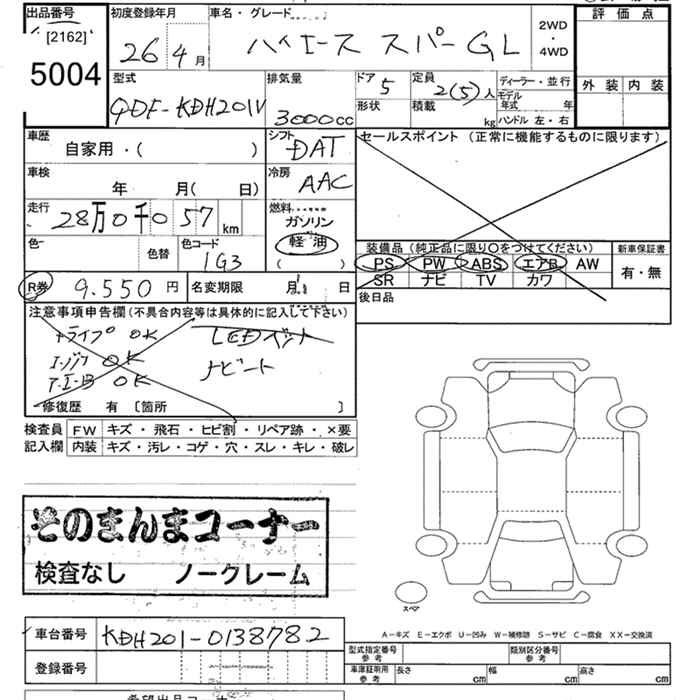 出品番号 初度登録年月 車名・グレード 評価点
[2162] 26年4月 ハイエース スパーGL 2WD・4WD
5004 外装 内装
型式 排気量 ドア 5 定員 2(5)人 ディーラー・並行
QDF-KDH201V 3000cc 形状 積載 kg モデル年式 年
ハンドル 左・右
車歴 シフト セールスポイント (正常に機能するものに限ります)
自家用・( ) DAT
車検 冷房
年 月( 日) AAC
走行 燃料
28万0千057km ガソリン
色 色替 色コード 軽油 装備品 (純正品に限り○をつけてください) 新車保証書
1G3 ( ) PS PW ABS エアB AW 有・無
R券 9.550円 名変期限 月 日 SR ナビ TV カワ
注意事項申告欄(不具合内容等は具体的に記入して下さい) 後日品
ドライブ OK LEDベット
エンジン OK ナビシート
OK
修復歴 有 〔箇所 〕
検査員 FW キズ・飛石・ヒビ割・リペア跡・×要
記入欄 内装 キズ・汚レ・コゲ・穴・スレ・キレ・破レ
そのまんまコーナー
検査なし ノークレーム
スペア
A-キズ E-エクボ U-凹み W-補修跡 S-サビ C-腐食 XX-交換済
車台番号 KDH201-0138782
型式指定番号 参考 類別区分番号 参考
登録番号 車庫証明用 参考 長さ cm 幅 cm 高さ cm
希望出品コーナー